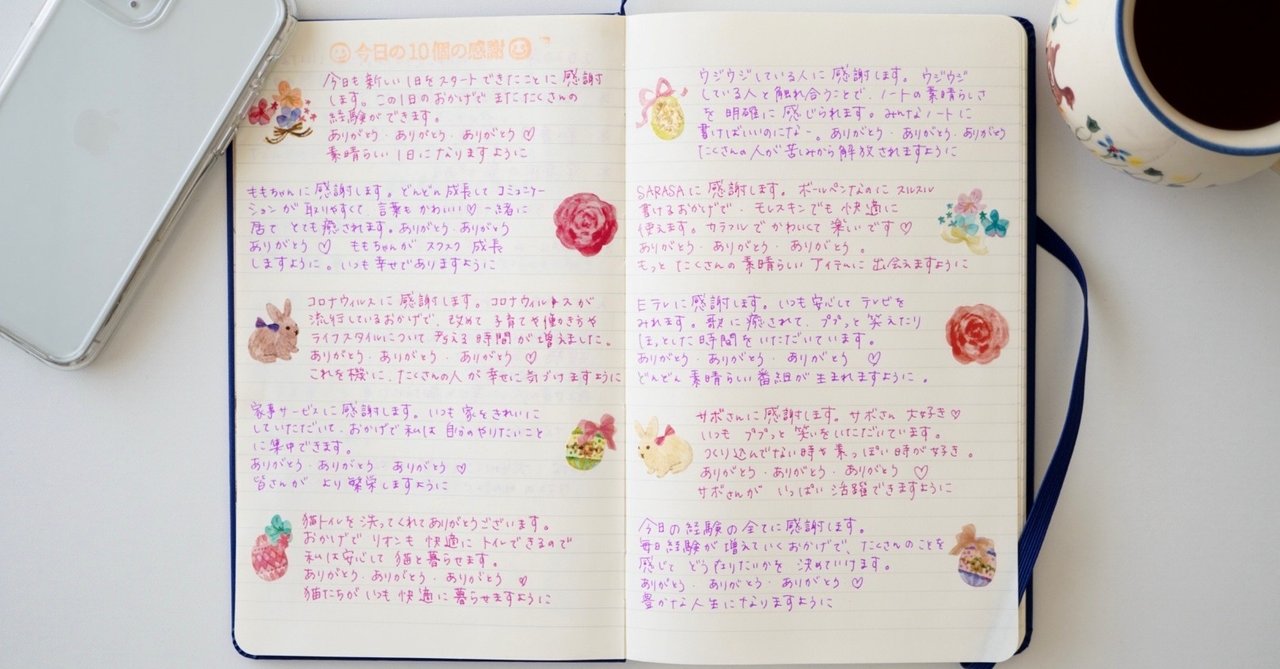 今日の10個の感謝
今日も新しい1日をスタートできたことに感謝
します。この1日のおかげでまたたくさんの
経験ができます。
ありがとう・ありがとう・ありがとう♡
素晴らしい1日になりますように
ももちゃんに感謝します。どんどん成長してコミュニケー
ションが取りやすくて言葉もかわいい♡一緒に
居てとても癒されます。ありがとう・ありがとう
ありがとう♡ ももちゃんがスクスク成長
しますように。いつも幸せでありますように
コロナウィルスに感謝します。コロナウィルスが
流行しているおかげで、改めて子育てや働き方や
ライフスタイルについて考える時間が増えました。
ありがとう・ありがとう・ありがとう♡
これを機に、たくさんの人が幸せに気づけますように
家事サービスに感謝します。いつも家をきれいに
していただいて、おかげで私は自分のやりたいこと
に集中できます。
ありがとう・ありがとう・ありがとう♡
皆さんがより繁栄しますように
猫トイレを洗ってくれてありがとうございます。
おかげでリオンも快適にトイレできるので
私は安心して猫と暮らせます。
ありがとう・ありがとう・ありがとう♡
猫たちがいつも快適に暮らせますように
ウジウジしている人に感謝します。ウジウジ
している人と触れ合うことで、ノートの素晴らしさ
を明確に感じられます。みんなノートに
書けばいいのになー。ありがとう・ありがとう・ありがとう
たくさんの人が苦しみから解放されますように
SARASAに感謝します。ボールペンなのにスルスル
書けるおかげで・モレスキンでも快適に
使えます。カラフルでかわいくて楽しいです♡
ありがとう・ありがとう・ありがとう。
もっとたくさんの素晴らしいアイテムに出会えますように
Eテレに感謝します。いつも安心してテレビを
みれます。歌に癒されて、ププっと笑えたり
ほっとした時間をいただいています。
ありがとう・ありがとう・ありがとう♡
どんどん素晴らしい番組が生まれますように。
サボさんに感謝します。サボさん大好き♡
いつもププっと笑いをいただいています。
つくり込んでない時や素っぽい時が好き。
ありがとう・ありがとう・ありがとう♡
サボさんがいっぱい活躍できますように
今日の経験の全てに感謝します。
毎日経験が増えていくおかげで、たくさんのことを
感じてどう在りたいかを決めていけます。
ありがとう・ありがとう・ありがとう♡
豊かな人生になりますように